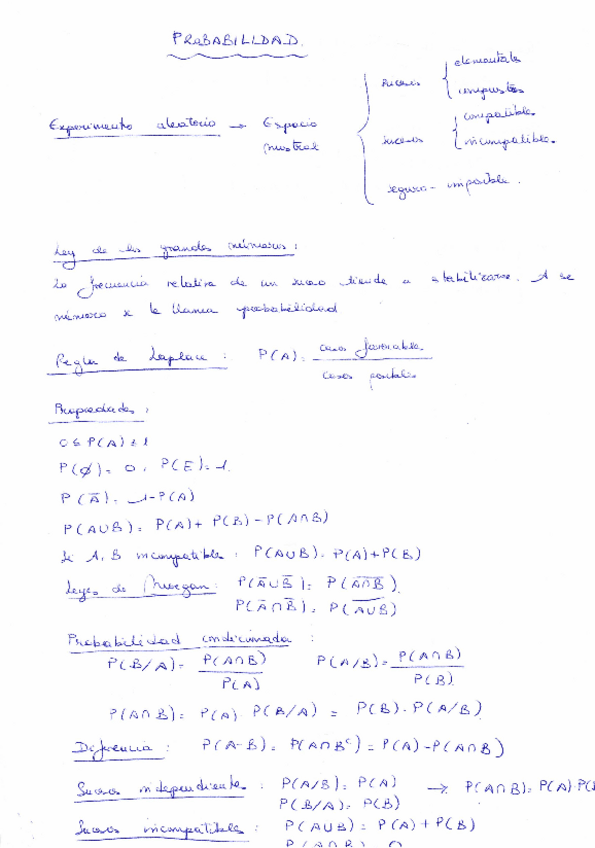 PROBABILIDAD.
Experimento aleatorio → Espacio
mustral
sucesos
elementales
compuestos
sucesos
compatibles
incompatibles.
seguro - imposible.
Ley de los grandes números:
La frecuencia relativa de un suceso tiende a stabilizarse. A se
número se le llama probabilidad
Regla de Laplace: P(A) = casos favorables
casos posibles
Propiedades:
0 ≤ P(A) ≤ 1
P(∅) = 0, P(E) = 1.
P(A̅) = 1 - P(A)
P(A∪B) = P(A) + P(B) - P(A∩B)
Si A, B incompatibles: P(A∪B) = P(A) + P(B)
Leyes de Morgan: P(A̅∪B̅) = P(A̅∩̅B̅).
P(A̅∩B̅) = P(A̅∪̅B̅)
Probabilidad condicionada:
P(B/A) = P(A∩B) / P(A) P(A/B) = P(A∩B) / P(B)
P(A∩B) = P(A) · P(B/A) = P(B) · P(A/B)
Diferencia: P(A-B) = P(A∩Bᶜ) = P(A) - P(A∩B)
Sucesos independientes: P(A/B) = P(A) → P(A∩B) = P(A)·P(
P(B/A) = P(B)
Sucesos incompatibles: P(A∪B) = P(A) + P(B)
P(A∩B) 0